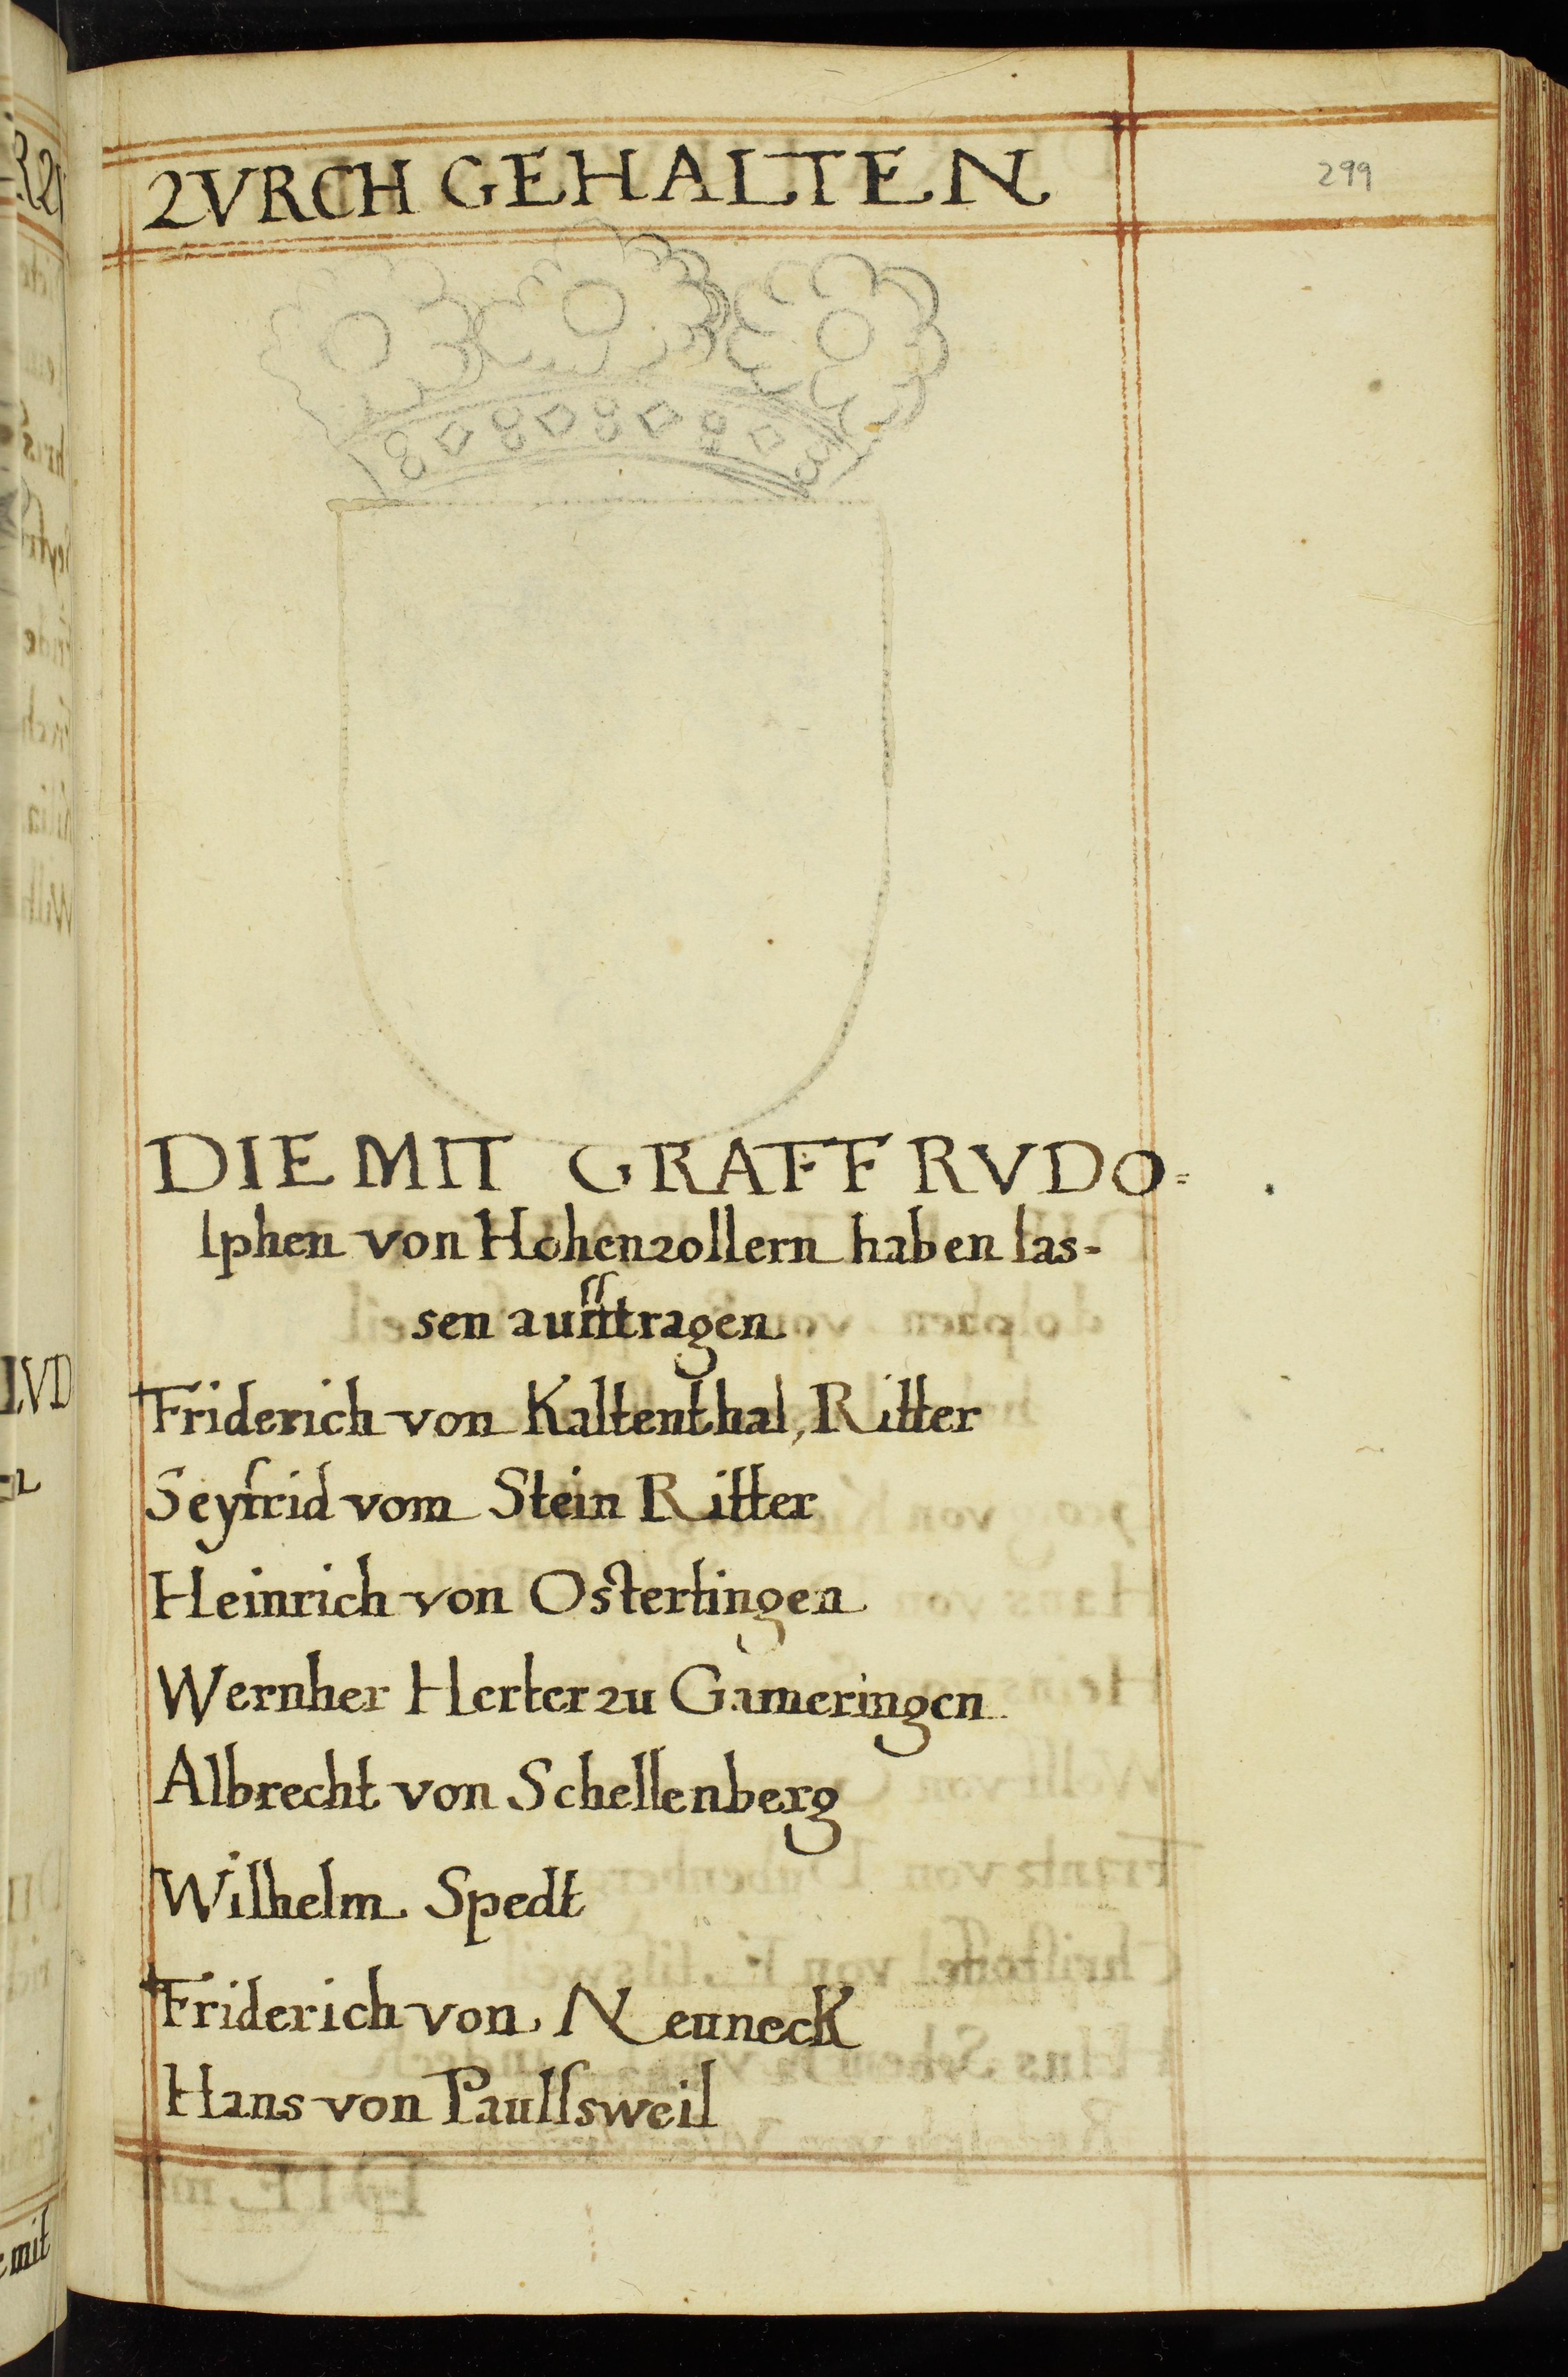 ZVRCH GEHALTEN
299
DIE MIT GRAFF RVDO=
lphen von Hohenzollern haben las=
sen aufftragen
Friderich von Kaltenthal, Ritter
Seyfrid vom Stein Ritter
Heinrich von Ostertingen
Wernher Herter zu Gameringen
Albrecht von Schellenberg
Wilhelm Spedt
Friderich von Neuneck
Hans von Paulſsweil